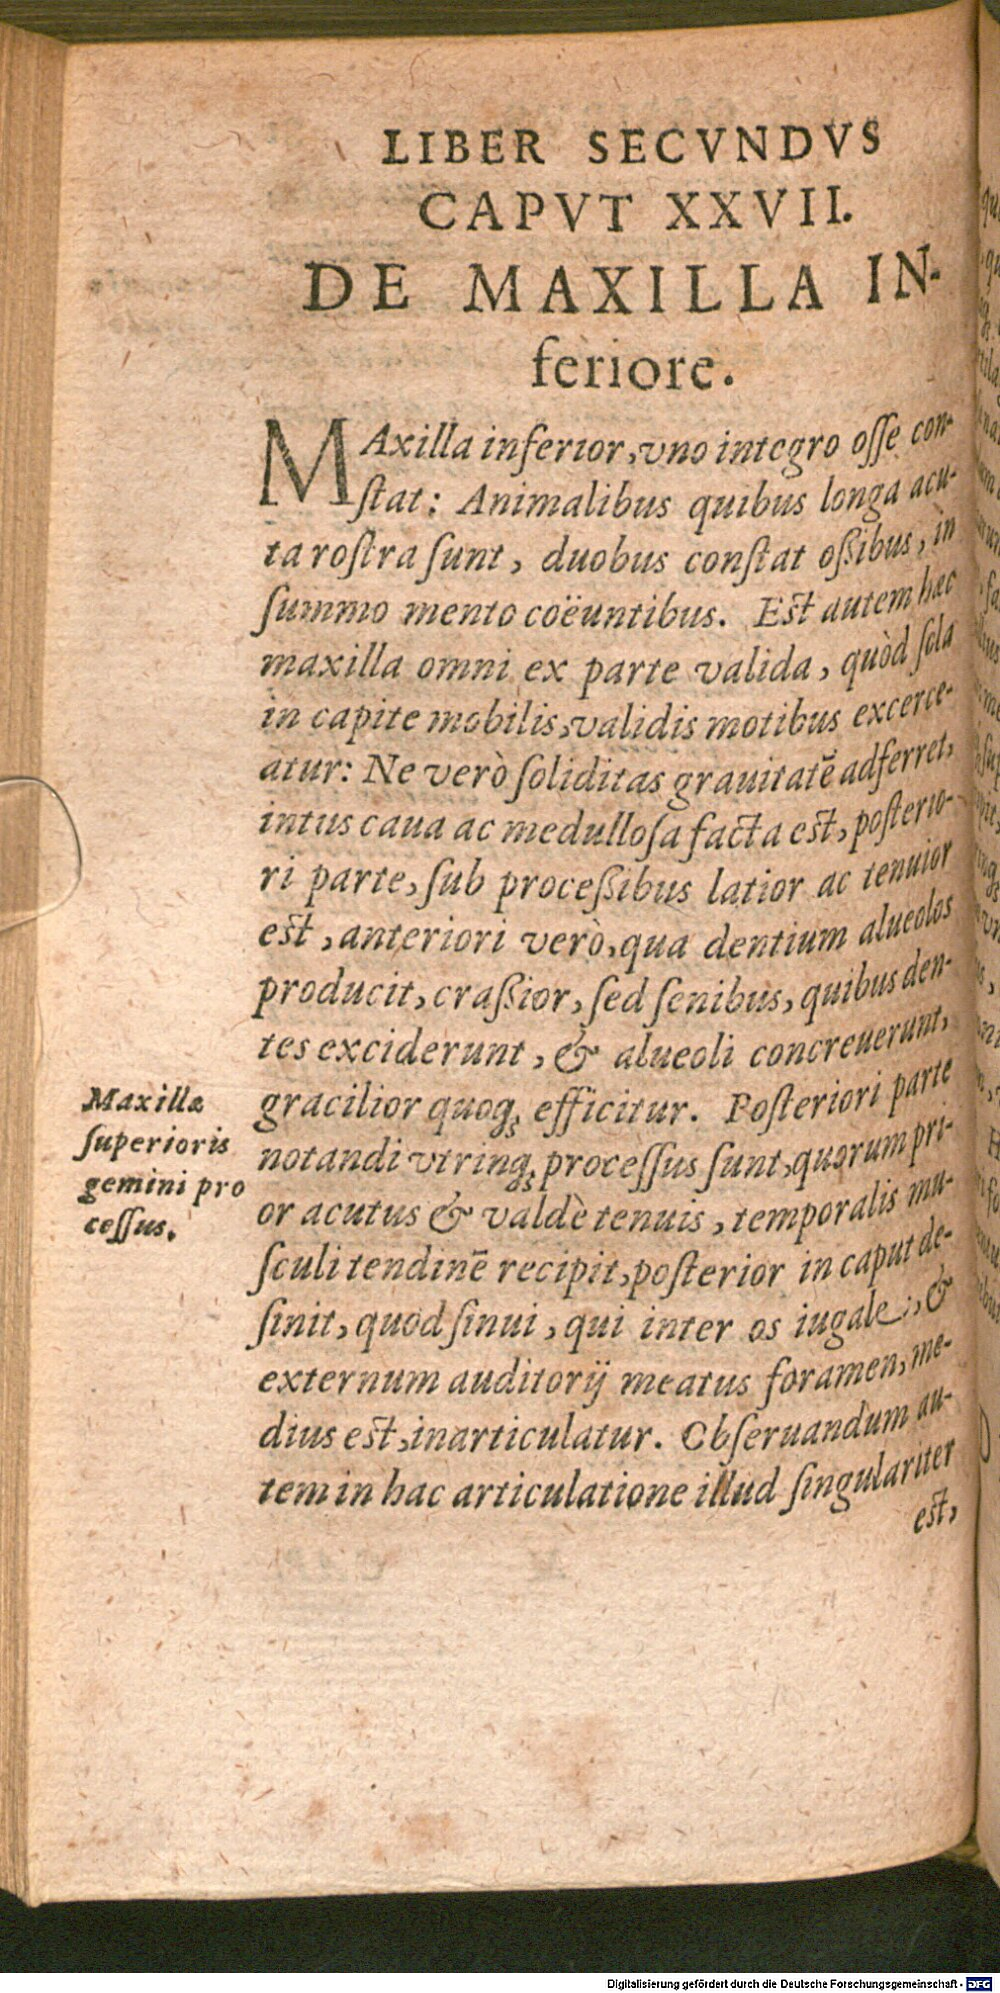 LIBER SECVNDVS
CAPVT XXVII.
DE MAXILLA IN-
feriore.
MAxilla inferior, vno integro osse con-
stat: Animalibus quibus longa acu-
ta rostra sunt, duobus constat oßibus, in
summo mento coëuntibus. Est autem hæc
maxilla omni ex parte valida, quòd sola
in capite mobilis, validis motibus excerce-
atur: Ne verò soliditas grauitatē adferret,
intus caua ac medullosa facta est, posterio-
ri parte, sub proceßibus latior ac tenuior
est, anteriori verò, qua dentium alueolos
producit, craßior, sed senibus, quibus den-
tes exciderunt, & alueoli concreuerunt,
gracilior quoq; efficitur. Posteriori parte
notandi vtrinq; processus sunt, quorum pri-
or acutus & valdè tenuis, temporalis mu-
sculi tendinē recipit, posterior in caput de-
sinit, quod sinui, qui inter os iugale, &
externum auditorij meatus foramen, me-
dius est, inarticulatur. Obseruandum au-
tem in hac articulatione illud singulariter
est,
Maxillæ
superioris
gemini pro
cessus.
Digitalisierung gefördert durch die Deutsche Forschungsgemeinschaft - DFG